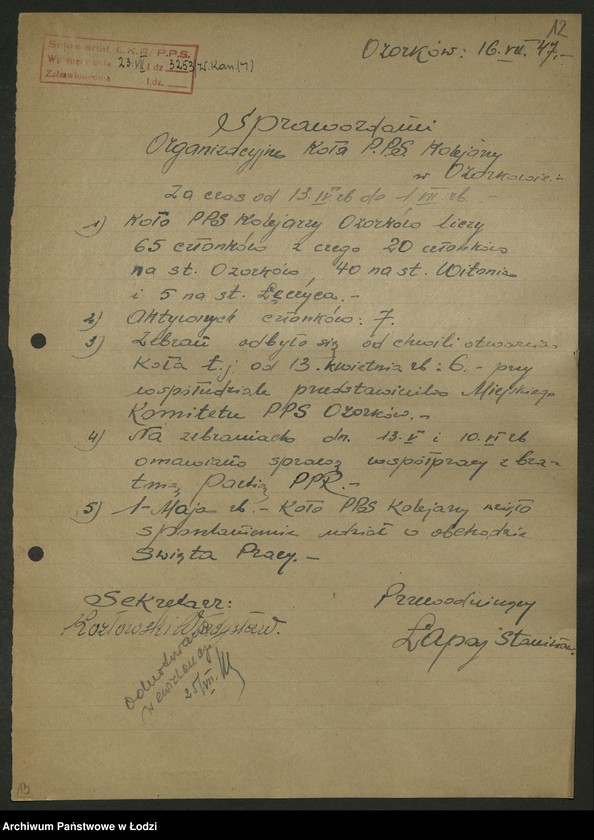 12
Sekretariat Ł.K.R. P.P.S.
Wpłynęło dnia 23.VII l.dz. 3253/W.Kan.(7)
Załatwiono dnia l.dz.
Ozorków: 16.VII.47.-
Sprawozdanie
Organizacyjne Koła P.P.S. Kolejarzy
w Ozorkowie.-
Za czas od 13.IV rb do 1 VII rb. -
1) Koło PPS Kolejarzy Ozorków liczy
65 członków z czego 20 członków
na st. Ozorków, 40 na st. Witonia
i 5 na st. Łęczyca.-
2) Aktywnych członków: 7.
3) Zebrań odbyło się od chwili otwarcia
Koła t.j. od 13. kwietnia rb: 6.- przy
współudziale przedstawicieli Miejskiego
Komitetu PPS Ozorków.-
4) Na zebraniach dn. 13.V i 10.VI rb
omawiano sprawę współpracy z bra-
tnią Partią PPR.-
5) 1-Maja rb.- Koło PPS Kolejarzy wzięło
spontanicznie udział w obchodzie
Święta Pracy.-
Sekretarz:
Przewodniczący
Kozłowski Władysław.
Łapaj Stanisław.
odnotowano
w ewidencji
25/VII.
13
Archiwum Państwowe w Łodzi